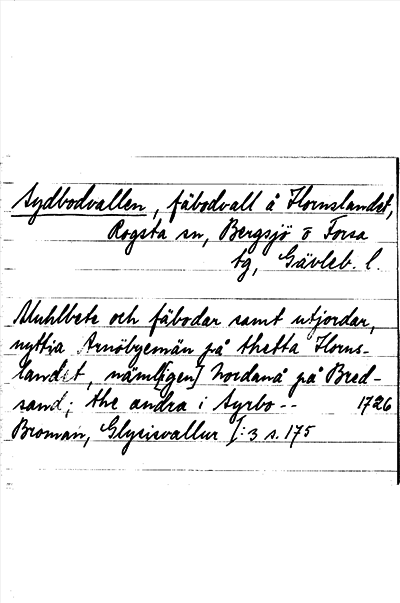 Sydbodvallen, fäbodvall å Hornslandet,
Rogsta sn, Bergsjö o Forsa
tg, Gävleb. l.
Muhlbete och fäbodar samt utjordar,
nyttja Arnöbyemän på thetta Horns-
landet, näml[igen] Nordanå på Bred-
sand; the andra i Syrbo--  1726
Broman, Glysisvallur I:3 s. 175